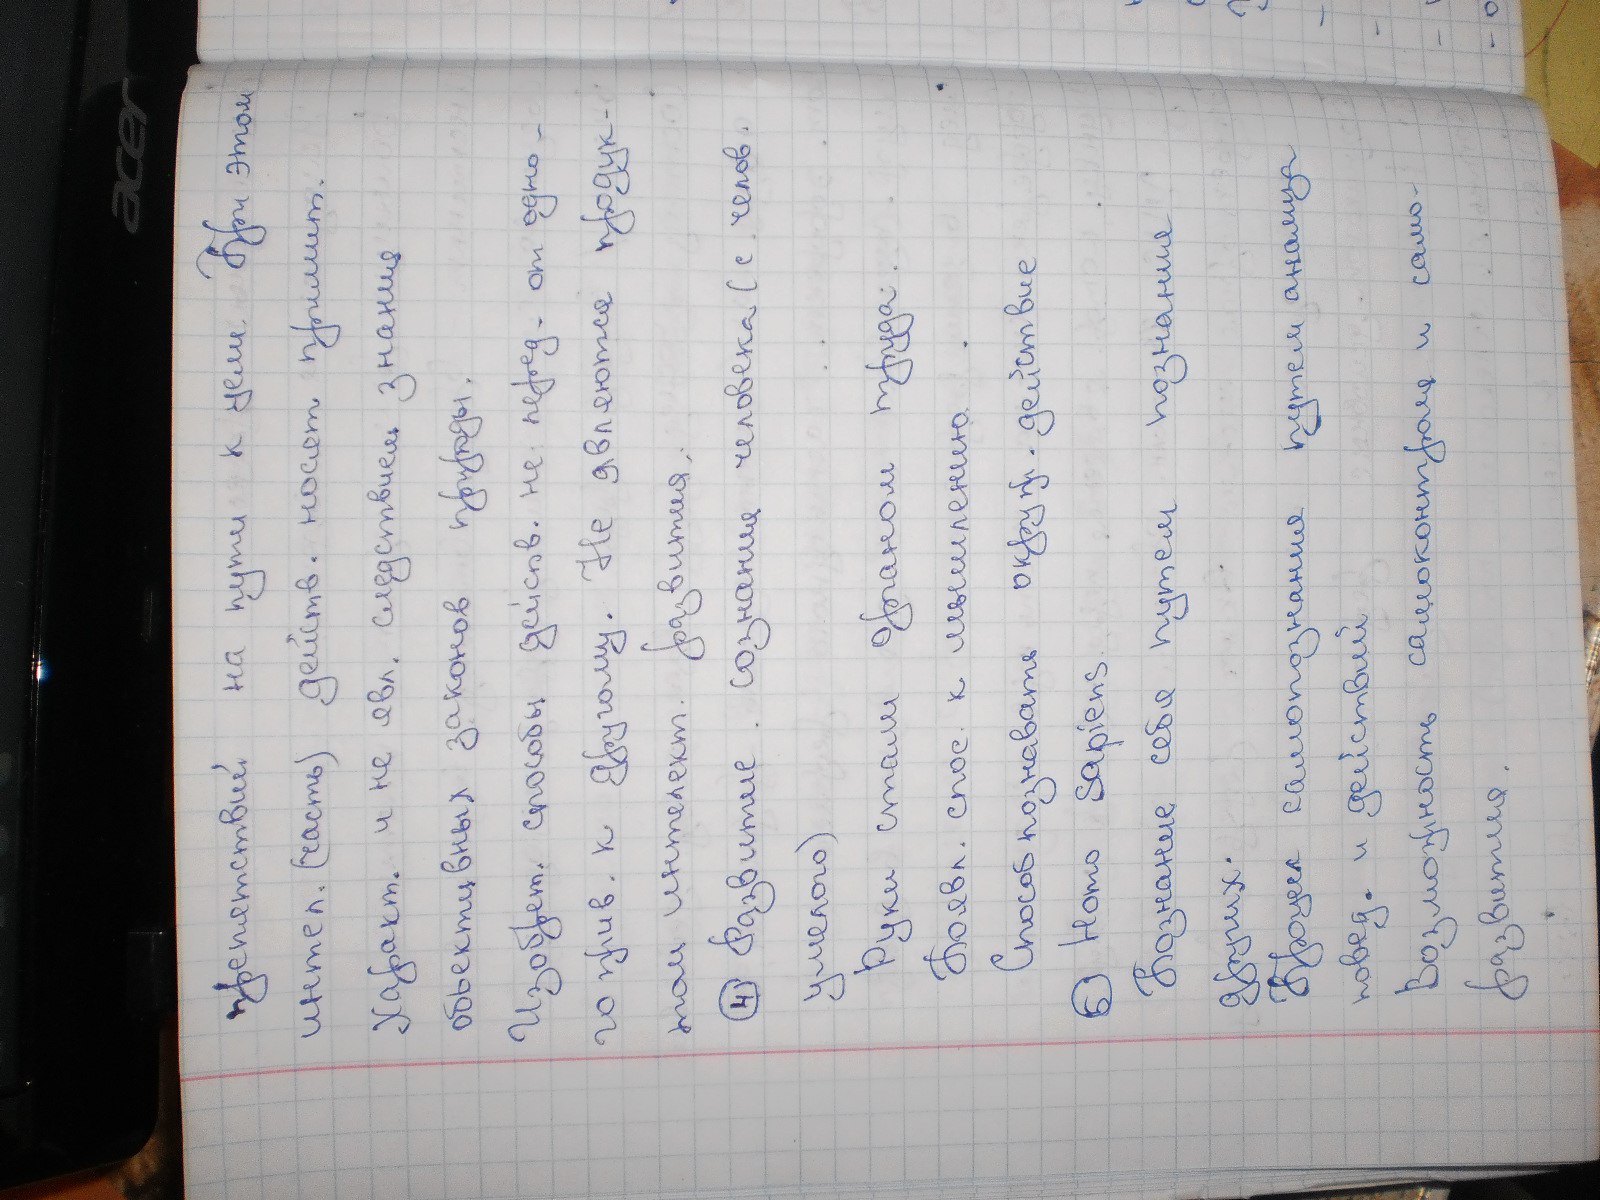 препятствий на пути к цели. При этом
интел. (часть) действ. носят примит.
Характ. и не явл. следствием знания
объективных законов природы.
Изобрет. способы действ. не перед. от одно-
го прив. к другому. Не являются продук-
том интелект. развития.
4 Развитие сознания человека (с челов.
умелого)
Руки стали органом труда.
Появл. спос. к мышлению.
Способ познавать окруж. действие
5 Homo Sapiens
Познание себя путем познания
других.
Процесс самопознания путем анализа
повед. и действий
Возможность самоконтроля и само-
развития.
acer